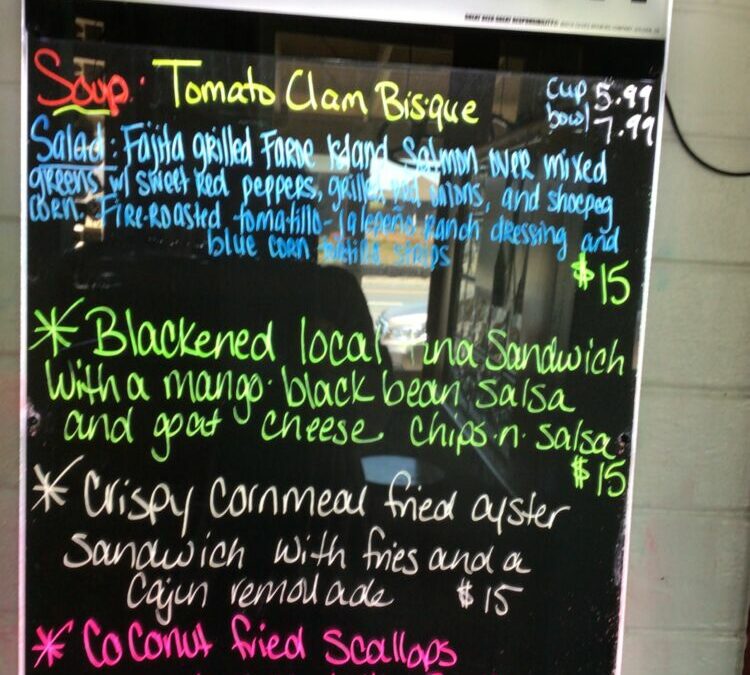 GREAT BEER GREAT RESPONSIBILITY
Soup: Tomato Clam Bisque
cup 5.99
bowl 7.99
Salad: Fajita grilled Faroe Island Salmon over mixed
greens w/ sweet Red peppers, grilled red onions, and shoepeg
corn. Fire-Roasted tomatillo-Jalapeño Ranch dressing and
blue corn tortilla strips
$15
* Blackened local tuna Sandwich
with a mango-black bean salsa
and goat cheese chips-n-salsa
$15
* Crispy Cornmeal fried oyster
Sandwich with fries and a
Cajun remoulade $15
* Coconut fried Scallops